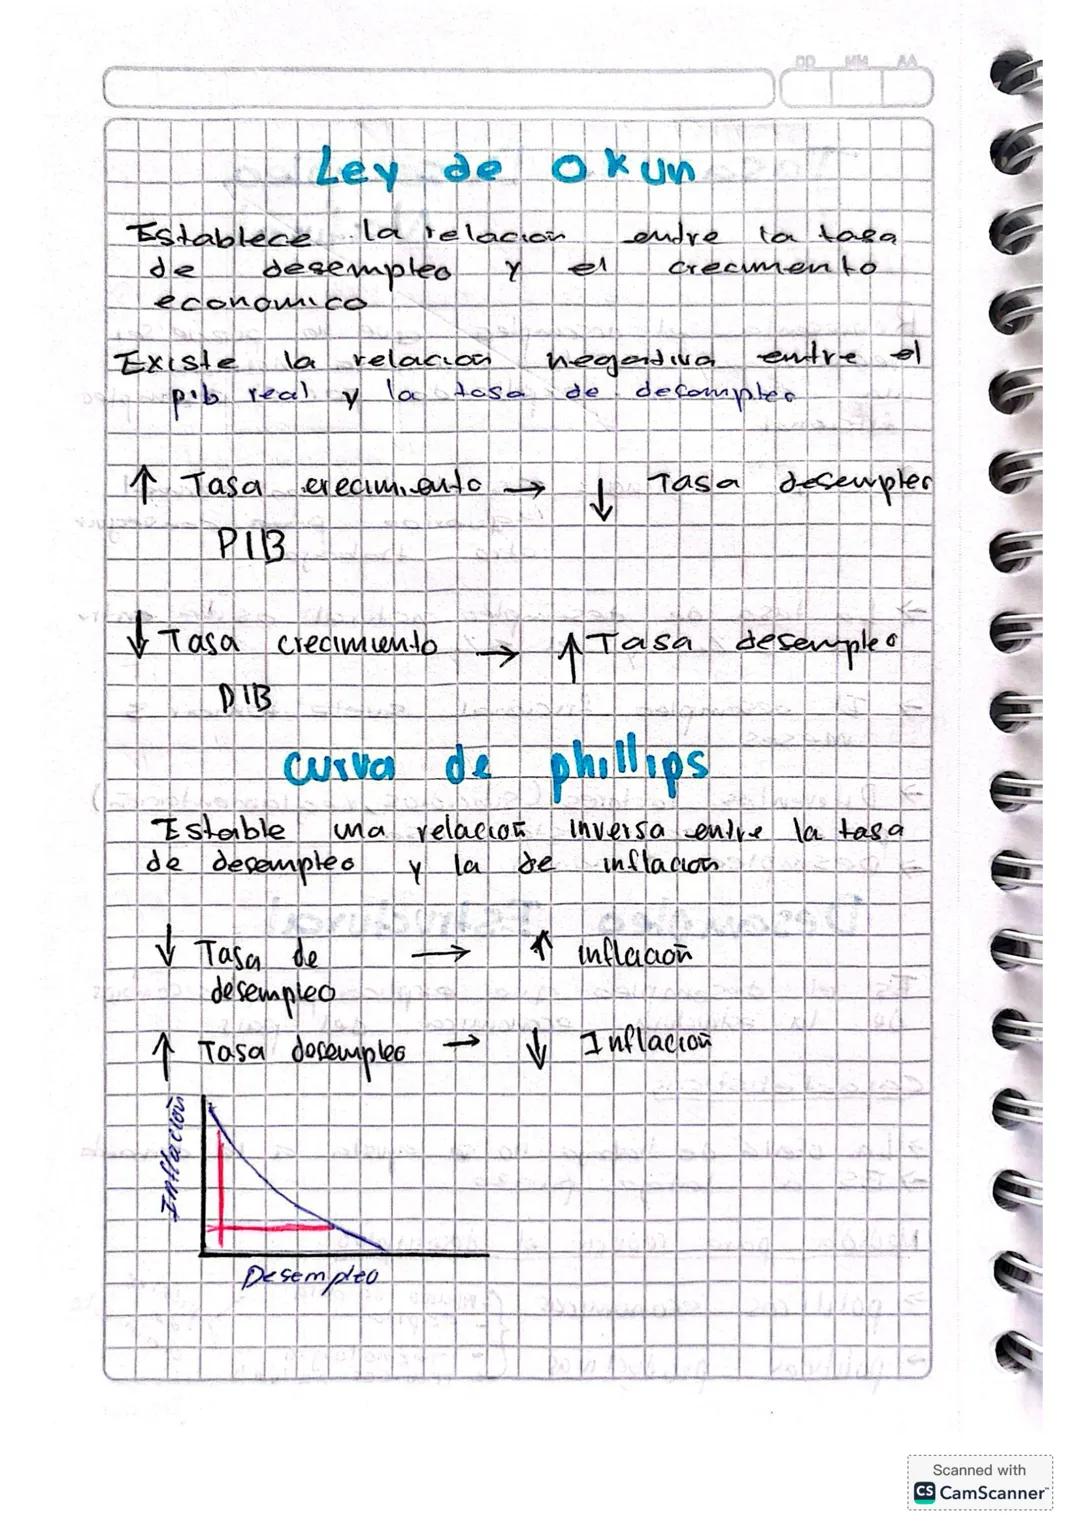 DD MM AA
Ley de Okun
Establece la relación entre la tasa
de desempleo y el crecimento
economico
Existe la relacion negativa entre el
pib real y la tasa de desempleo
↑ Tasa crecimiento → ↓ Tasa desempleo
PIB
↓ Tasa crecimiento → ↑ Tasa desempleo
PIB
curva de phillips
Estable una relación inversa entre la tasa
de desempleo y la de inflación
↓ Tasa de → ↑ inflación
desempleo
↑ Tasa desempleo → ↓ Inflación
Inflación
Desempleo
Scanned with
CS CamScanner